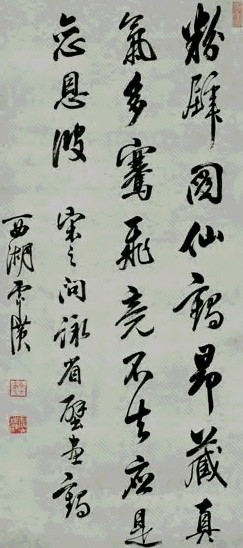 粉壁圖仙鶴昂藏真
氣多騫飛竟不去應是
恋恩波 宋之問詠省壁畫鶴
西湖